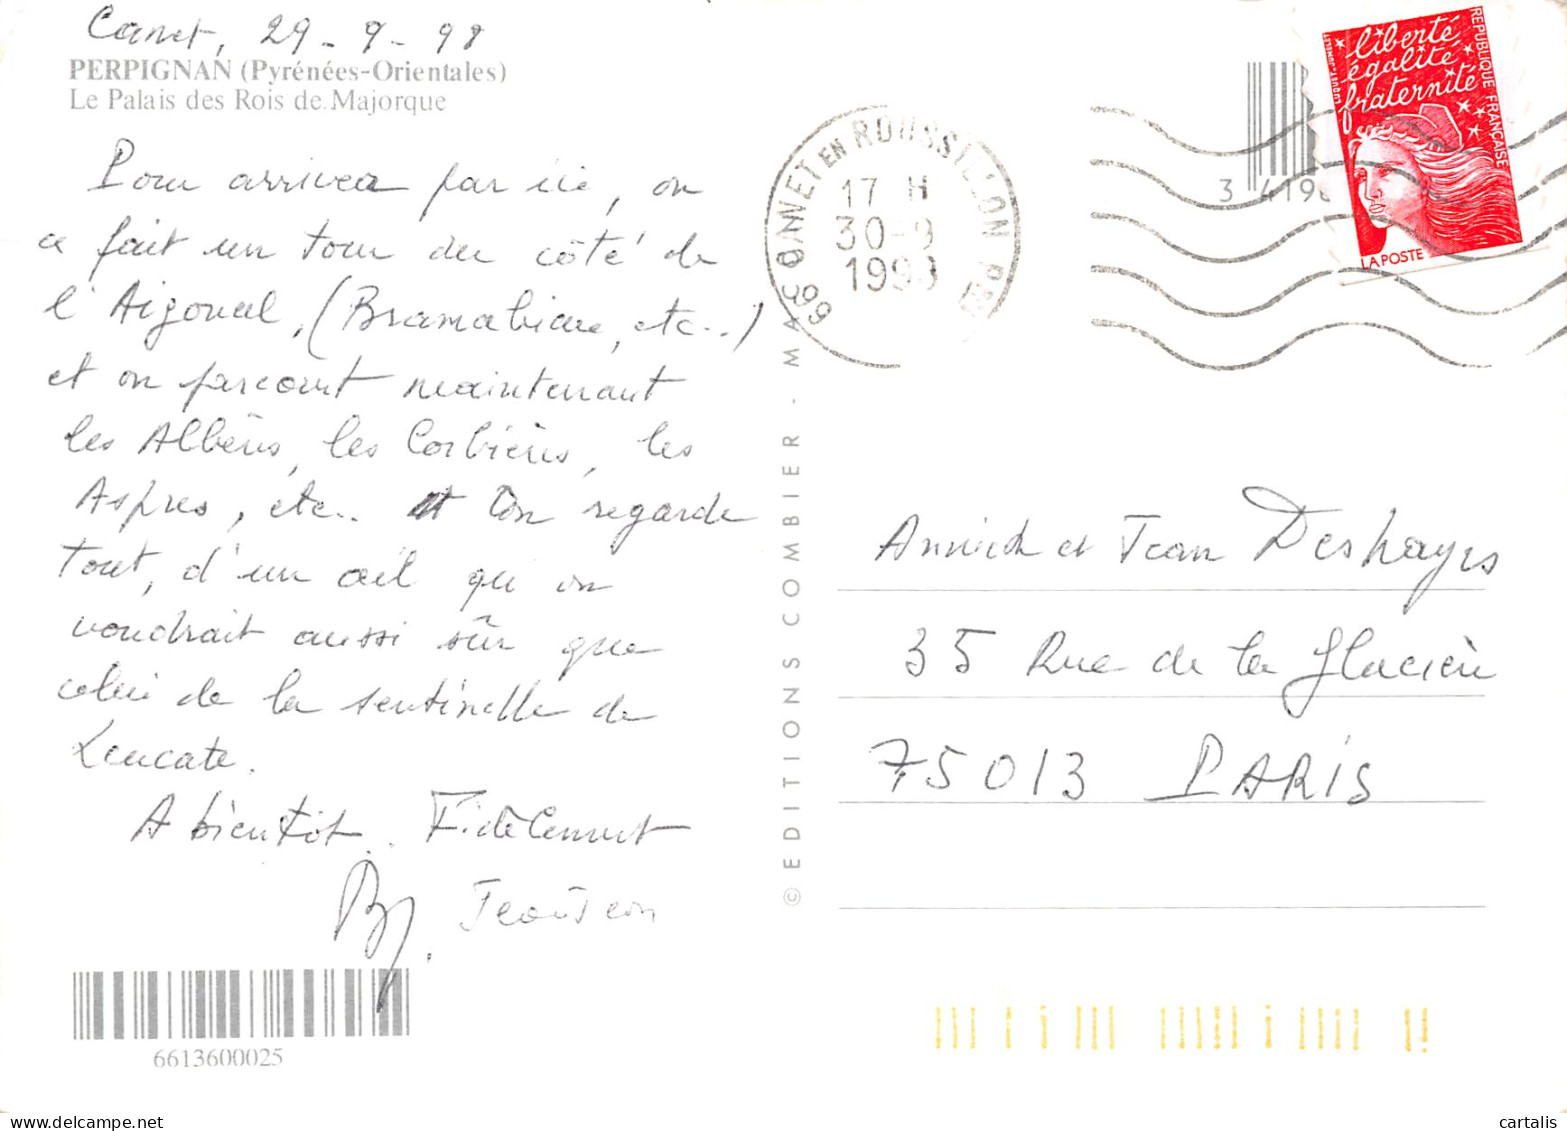 Canet, 29-9-98
PERPIGNAN (Pyrénées-Orientales)
Le Palais des Rois de Majorque
Pour arriver par ici, on
a fait un tour du côté de
l'Aigoual, (Bramabiau, etc..)
et on parcourt maintenant
les Albères, les Corbières, les
Aspres, etc.. On regarde
tout, d'un œil qu'on
voudrait aussi sûr que
celui de la sentinelle de
Leucate.
A bientôt. Fidèlement
6613600025
© EDITIONS COMBIER - MAC
66 CANET EN ROUSSILLON
17 H
30-9
199
3 4198
liberté
égalité
fraternité
REPUBLIQUE FRANÇAISE
LA POSTE
Annick et Jean Deshayes
35 Rue de la Glacière
75013 PARIS
cartalis